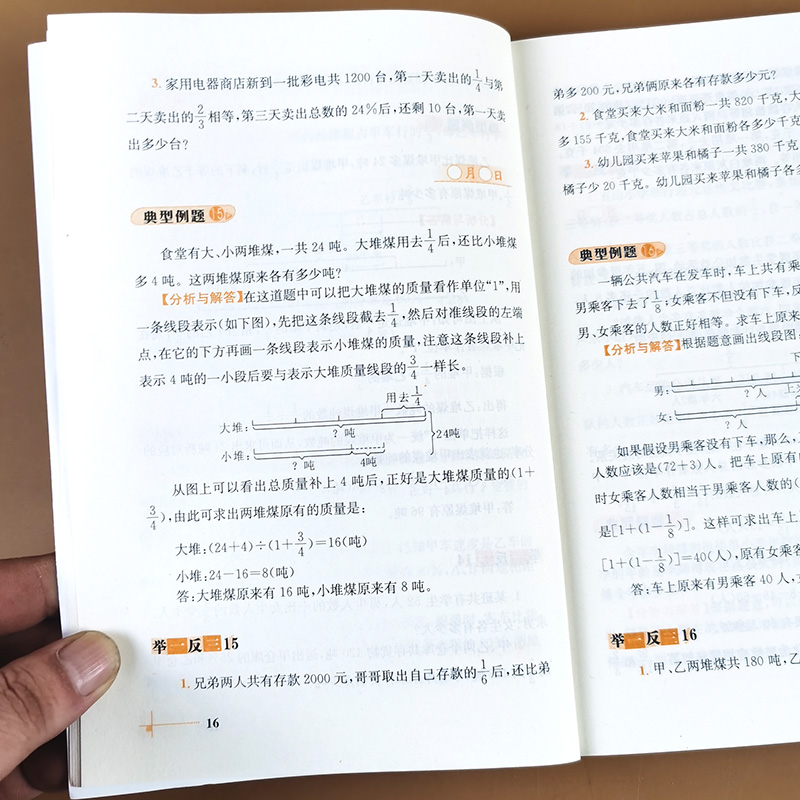 3. 家用电器商店新到一批彩电共 1200 台,第一天卖出的1/4与第
二天卖出的2/3相等,第三天卖出总数的 24%后,还剩 10 台,第一天卖
出多少台?
月 日
典型例题 15
食堂有大、小两堆煤,一共 24 吨。大堆煤用去1/4后,还比小堆煤
多 4 吨。这两堆煤原来各有多少吨?
【分析与解答】在这道题中可以把大堆煤的质量看作单位“1”,用
一条线段表示(如下图),先把这条线段截去1/4,然后对准线段的左端
点,在它的下方再画一条线段表示小堆煤的质量,注意这条线段补上
表示 4 吨的一小段后要与表示大堆质量线段的3/4一样长。
用去1/4
大堆:
? 吨
24吨
小堆:
? 吨 4吨
从图上可以看出总质量补上 4 吨后,正好是大堆煤质量的(1+
3/4),由此可求出两堆煤原有的质量是:
大堆:(24+4)÷(1+3/4)=16(吨)
小堆:24-16=8(吨)
答:大堆煤原来有 16 吨,小堆煤原来有 8 吨。
举一反三 15
1. 兄弟两人共有存款 2000 元,哥哥取出自己存款的1/6后,还比弟
16
弟多 200 元,兄弟俩原来各有存款多少元?
2. 食堂买来大米和面粉一共 820 千克,大
多 155 千克,食堂买来大米和面粉各多少千克
3. 幼儿园买来苹果和橘子一共 380 千克
橘子少 20 千克。幼儿园买来苹果和橘子各多
典型例题 16
一辆公共汽车在发车时,车上共有乘
男乘客下去了1/8;女乘客不但没有下车,反
男、女乘客的人数正好相等。求车上原来
【分析与解答】根据题意画出线段图
下
男:
? 人 上
女:
? 人
如果假设男乘客没有下车,那么,
人数应该是(72+3)人。把车上原有
时女乘客人数相当于男乘客人数的(
是[1+(1-1/8)]。这样可求出车上
[1+(1-1/8)]=40(人),原有女乘客
答:车上原来有男乘客 40 人,
举一反三 16
1. 甲、乙两堆煤共 180 吨,乙